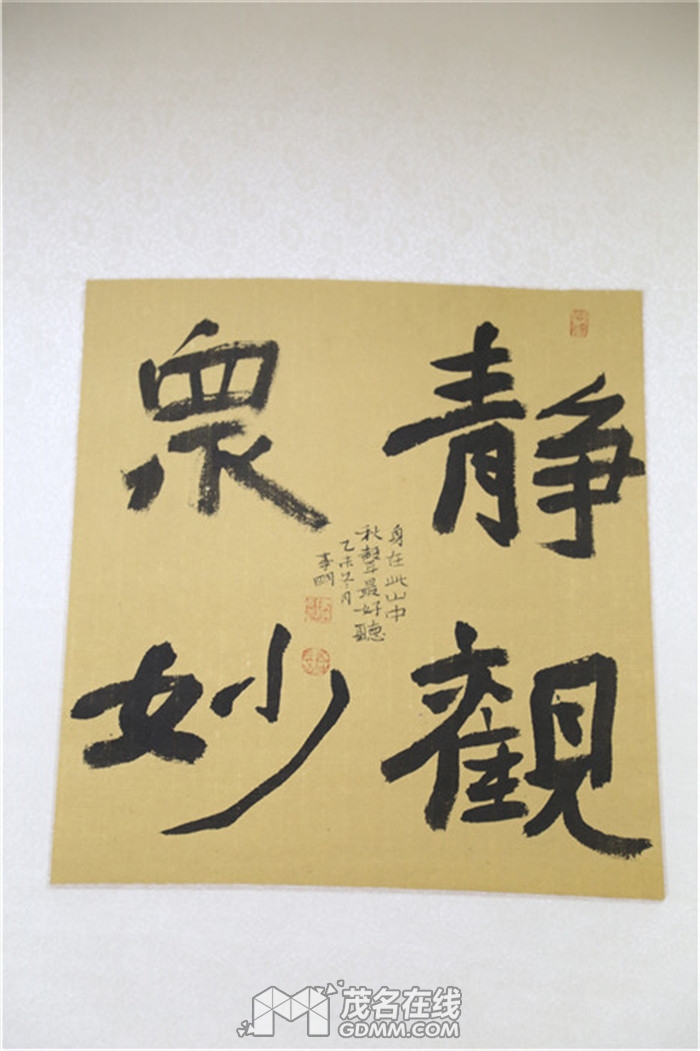 靜觀
眾妙
身在此山中
秋聲最好聽
乙未冬月
茂名在线
GDMM.COM